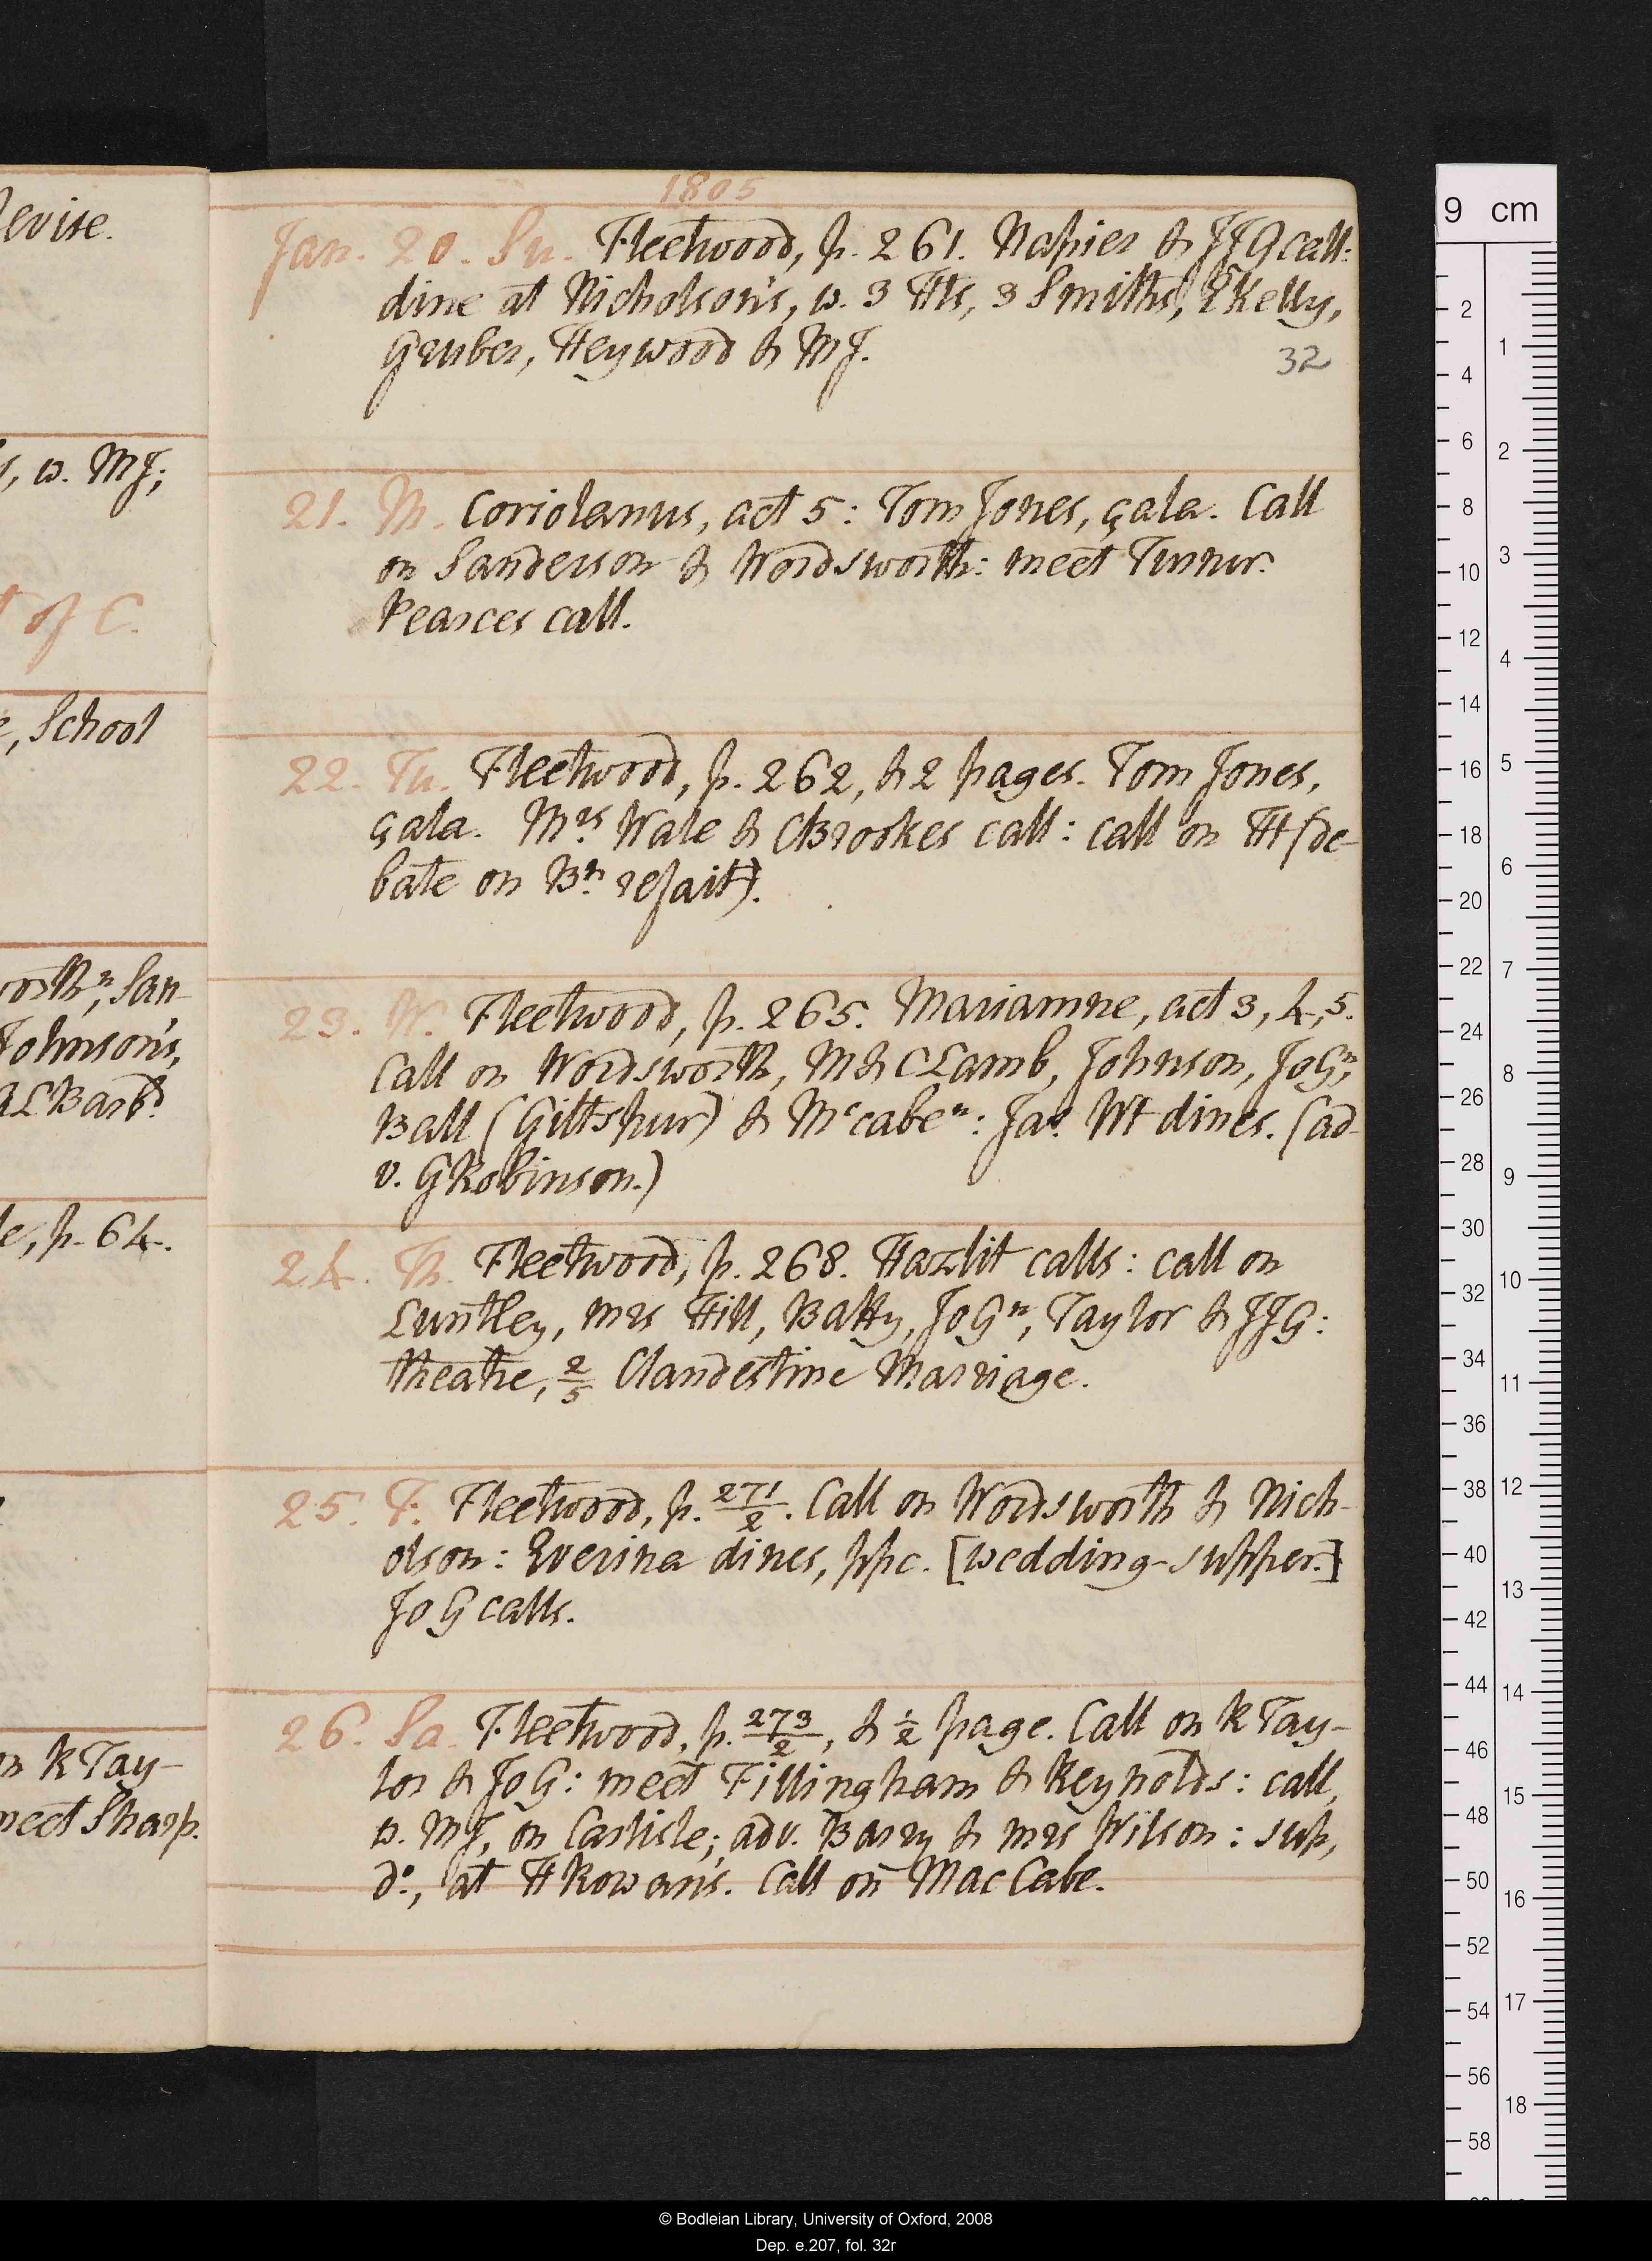 1805
Jan. 20. Su. Fleetwood, p. 261. Napier & JJG call:
dine at Nicholson's, w. 3 Hts, 3 Smiths, EKelly,
Gruber, Heywood & MJ.
32
21. M. Coriolanus, act 5: Tom Jones, çala. Call
on Sanderson & Wordsworth: meet Turner.
Pearces call.
22. Tu. Fleetwood, p. 262, & 2 pages. Tom Jones,
çala. Mrs Wale & CBrookes call: call on TH (de-
bate on Bn refait).
23. W. Fleetwood, p. 265. Mariamne, act 3, 4, 5.
Call on Wordsworth, M & C Lamb, Johnson, JoGn,
Ball (Giltspur) & Mccaben: Jas. Wt dines. (ad-
v. GRobinson.)
24. Th. Fleetwood, p. 268. Hazlit calls: call on
Luntley, Mrs Hill, Batty, JoGn, Taylor & JJG:
theatre, 2/5 Clandestine Marriage.
25. F. Fleetwood, p. 271/2. Call on Wordsworth & Nich-
olson: Everina dines, ppc. [wedding-supper.]
JoG calls.
26. Sa. Fleetwood, p. 273/2, & 1/2 page. Call on RTay-
lor & JoG: meet Fillingham & Reynolds: call,
w. MJ, on Carlisle; adv. Barry & mrs Wilson: sup,
do., at HRowan's. Call on MacCabe.
evise.
, w. MJ;
of C.
, School
orthn, San-
Johnson's,
ALBarbd
le, p. 64.
n RTay-
meet Sharp.
9 cm
2
4
6
8
10
12
14
16
18
20
22
24
26
28
30
32
34
36
38
40
42
44
46
48
50
52
54
56
58
1
2
3
4
5
6
7
8
9
10
11
12
13
14
15
16
17
18
© Bodleian Library, University of Oxford, 2008
Dep. e.207, fol. 32r